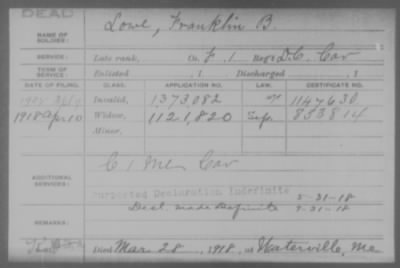 DEAD
NAME OF SOLDIER: Lowe, Franklin B.
SERVICE: Late rank, Co. F, 1 Reg't D.C. Cav
TERM OF SERVICE: Enlisted , 1 Discharged , 1
DATE OF FILING. CLASS. APPLICATION NO. LAW. CERTIFICATE NO.
Invalid, 1373082 1147630
1918 Apr 10 Widow, 1121,820 833814
Minor,
C 1 Me Cav
ADDITIONAL SERVICES:
Purported Declaration Indefinite 5-21-18
Decl. made definite 7-31-18
REMARKS:
Died Mar 28, 1918, at Waterville, Me